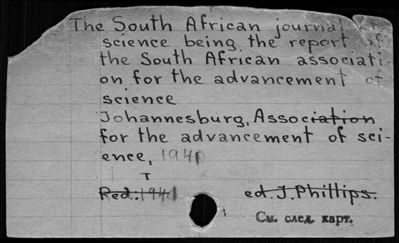 The South African journal of
science being the report of
the South African associati-
on for the advancement of
science
Johannesburg, Association
for the advancement of sci-
ence, 1940
T
Red. 1941 ed. J. Phillips.
См. след. карт.